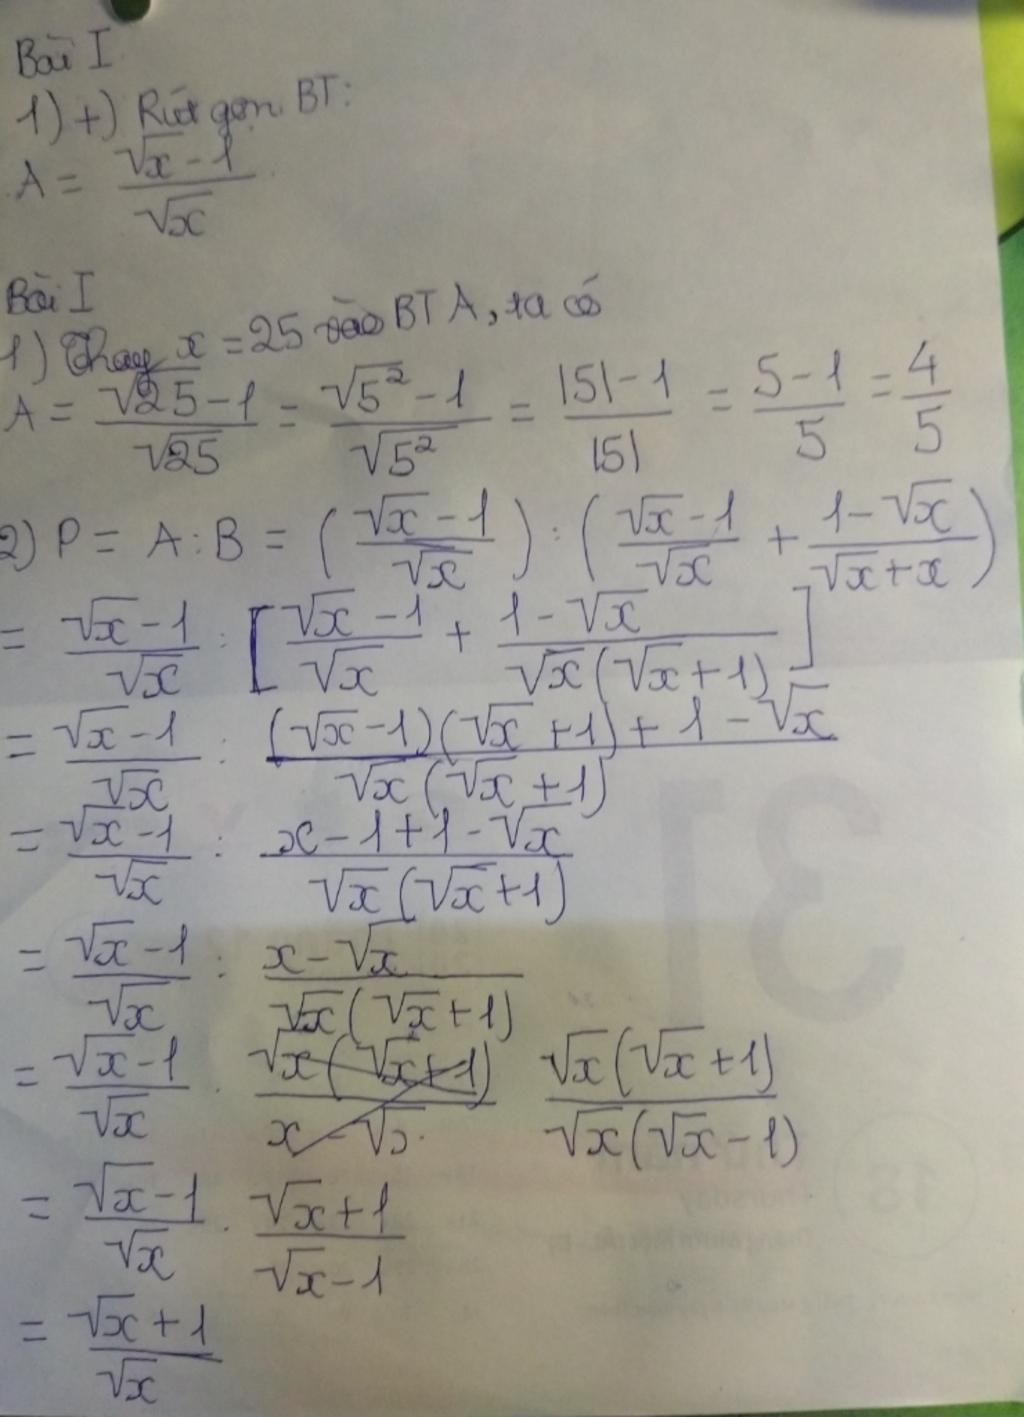 Bài I
1) +) Rút gọn BT:
A = (√x - 1)/√x
Bài I
1) Thay x = 25 vào BT A, ta có
A = (√25 - 1)/√25 = (√5² - 1)/√5² = (|5| - 1)/|5| = (5 - 1)/5 = 4/5
2) P = A : B = ((√x - 1)/√x) : ((√x - 1)/√x + (1 - √x)/(√x + x))
= (√x - 1)/√x : [(√x - 1)/√x + (1 - √x)/(√x(√x + 1))]
= (√x - 1)/√x : ((√x - 1)(√x + 1) + 1 - √x)/(√x(√x + 1))
= (√x - 1)/√x : (x - 1 + 1 - √x)/(√x(√x + 1))
= (√x - 1)/√x : (x - √x)/(√x(√x + 1))
= (√x - 1)/√x . (√x(√x + 1))/(x - √x) (√x(√x + 1))/(√x(√x - 1))
= (√x - 1)/√x . (√x + 1)/(√x - 1)
= (√x + 1)/√x
31
18